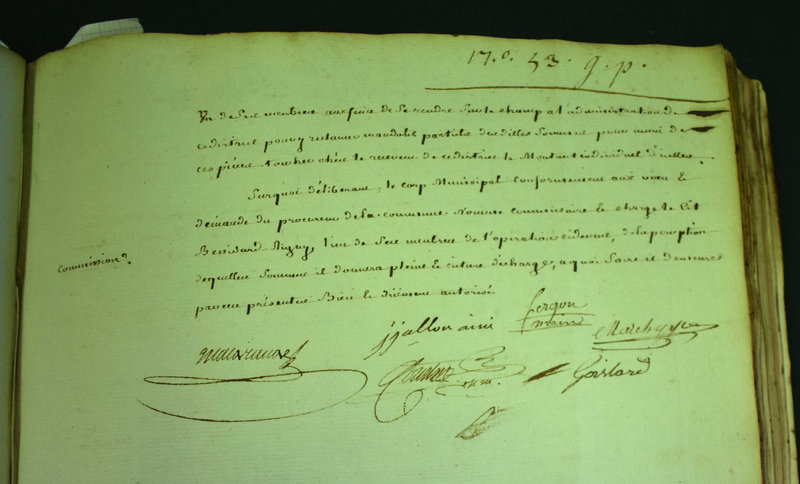 17.e 53 g. p.
un de ses membres aux fins de se rendre sur le champ a l'administration de
ce district pour y reclamer mandats partiels desdittes sommes pour muni de
ces pièces toucher chés le receveur de ce district le Montant individuel d'icelles.
Surquoi déliberant, le corp Municipal conformement aux voeu &
demande du procureur de la commune Nomme commissaire & charge le Cit
l'un de ses membres de l'operation cidessus, de la perception
desquelles sommes il donnera pleine & entiere décharge, a quoi faire il demeure
par ces présentes Bien & düement autorisé
Commission
jallon ainé
fergon
maire